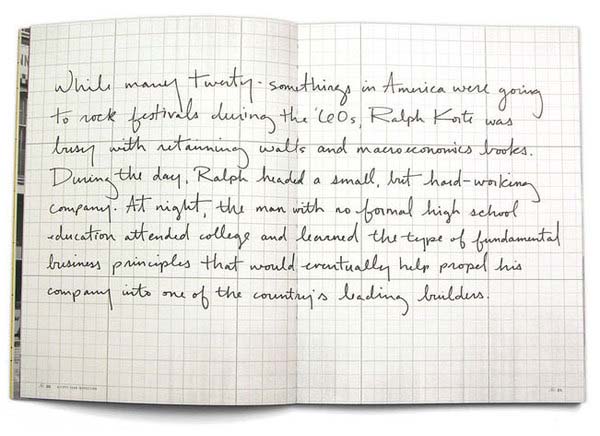 While many twenty-somethings in America were going
to rock festivals during the '60s, Ralph Korte was
busy with retainning walls and macroeconomics books.
During the day, Ralph headed a small, but hard-working
company. At night, the man with no formal high school
education attended college and learned the type of fundamental
business principles that would eventually help propel his
company into one of the country's leading builders.